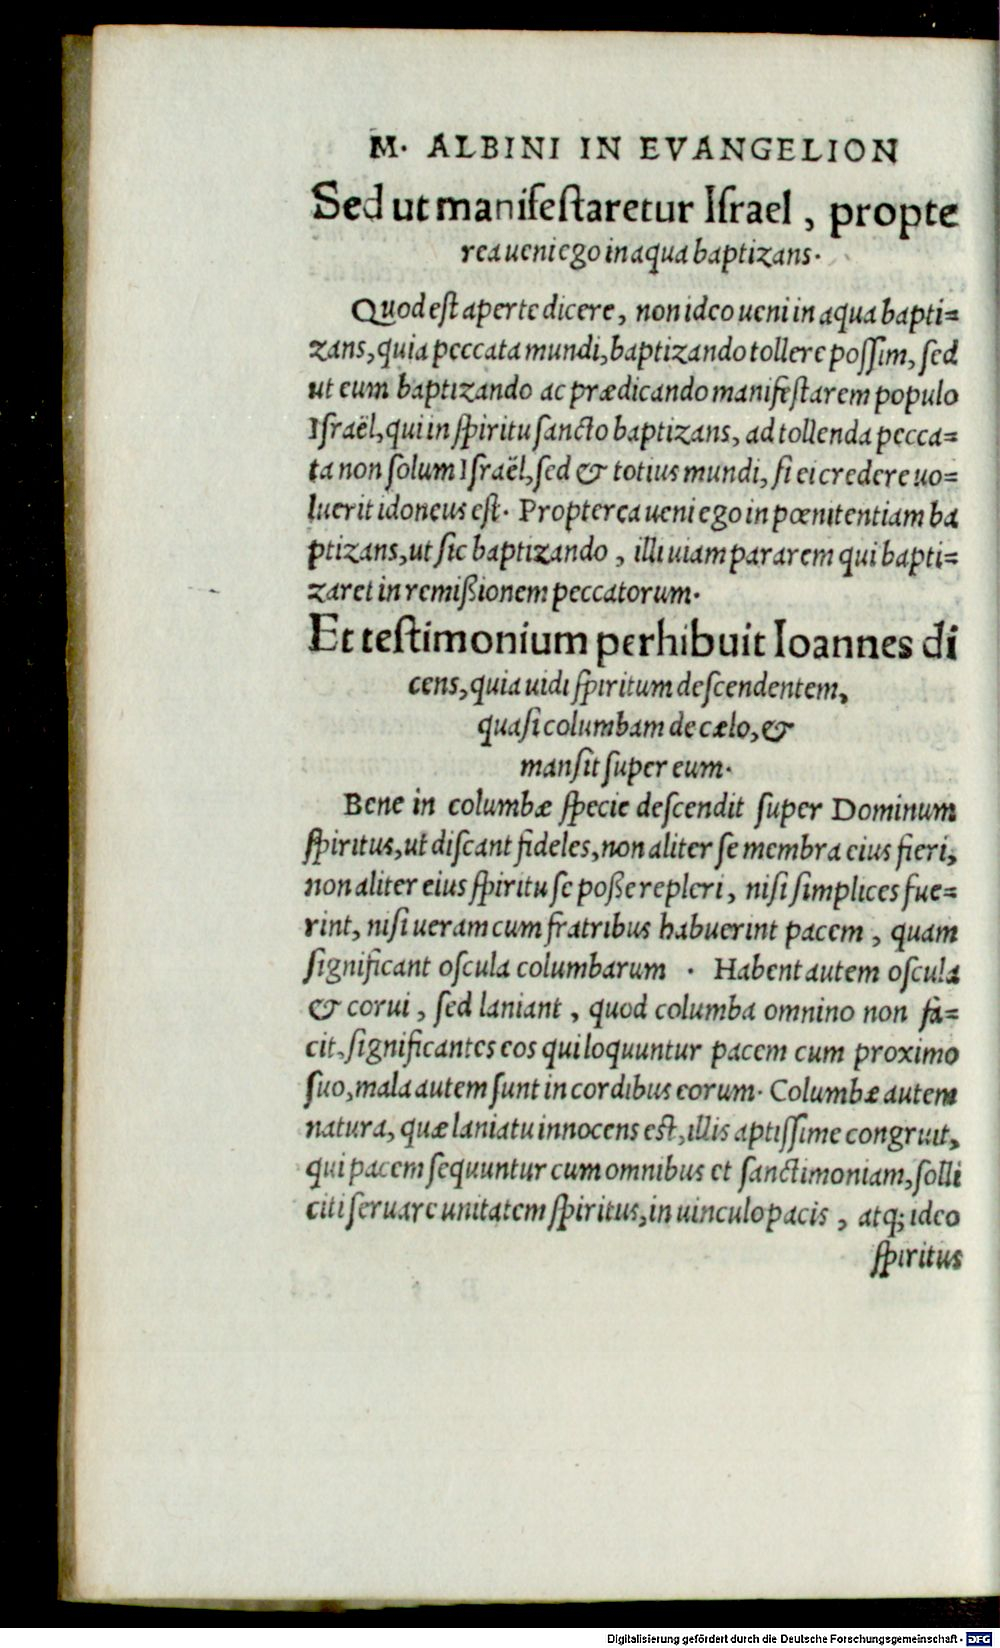 M. ALBINI IN EVANGELION
Sed ut manifeſtaretur Iſrael, propte
rea ueni ego in aqua baptizans.
Quod eſt aperte dicere, non ideo ueni in aqua bapti=
zans, quia peccata mundi, baptizando tollere poſſim, ſed
ut eum baptizando ac prædicando manifeſtarem populo
Iſraël, qui in ſpiritu ſancto baptizans, ad tollenda pecca=
ta non ſolum Iſraël, ſed & totius mundi, ſi ei credere uo=
luerit idoneus eſt. Propterea ueni ego in pœnitentiam ba
ptizans, ut ſic baptizando, illi uiam pararem qui bapti=
zaret in remißionem peccatorum.
Et teſtimonium perhibuit Ioannes di
cens, quia uidi ſpiritum deſcendentem,
quaſi columbam de cælo, &
manſit ſuper eum.
Bene in columbæ ſpecie deſcendit ſuper Dominum
ſpiritus, ut diſcant fideles, non aliter ſe membra eius fieri,
non aliter eius ſpiritu ſe poße repleri, niſi ſimplices fue=
rint, niſi ueram cum fratribus habuerint pacem, quam
ſignificant oſcula columbarum. Habent autem oſcula
& corui, ſed laniant, quod columba omnino non fa=
cit, ſignificantes eos qui loquuntur pacem cum proximo
ſuo, mala autem ſunt in cordibus eorum. Columbæ autem
natura, quæ laniatu innocens est, illis aptiſſime congruit,
qui pacem ſequuntur cum omnibus et ſanctimoniam, ſolli
citi ſeruare unitatem ſpiritus, in uinculo pacis, atq; ideo
ſpiritus
Digitalisierung gefördert durch die Deutsche Forschungsgemeinschaft - DFG